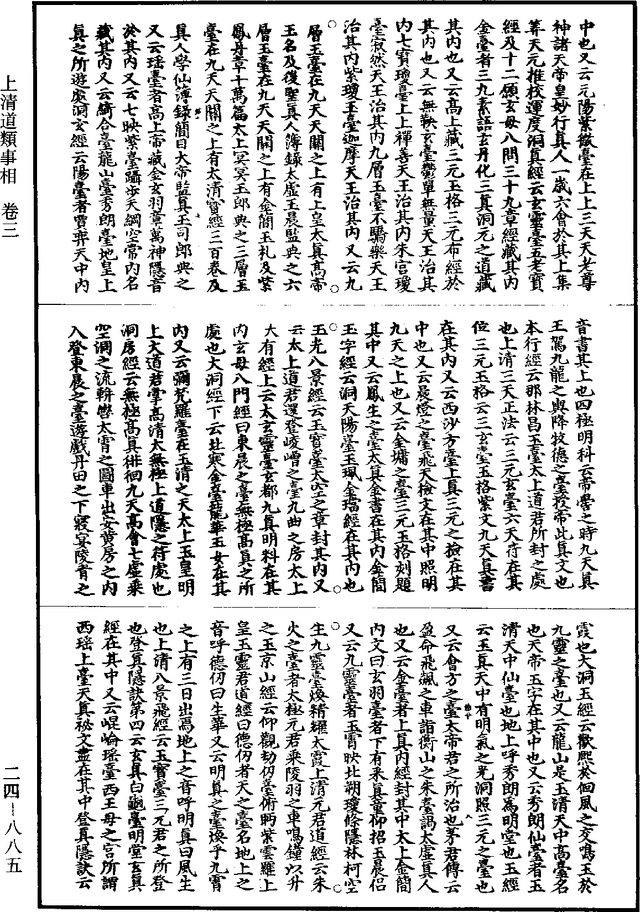 上清道類事相　卷三
二四—八八五
中也又云元陽紫微臺在上上三天天老尊
神諸天帝皇妙行真人一歲六會於其上集
筭天元推校運度洞真經云玄靈臺五老寶
經及十二願玄母八門三十九章經藏其內
金臺者三九素語玄丹化三真洞元之道藏
其內也又云高上藏三元玉格三元布經於
其內也又云無鞅玄臺鬱單無量天王治其
內七寶瓊臺上上禪善天王治其內朱宮瓊
臺寂然天王治其內九層玉臺不驕樂天王
治其內紫瓊玉臺迦摩天王治其內又云九
層玉臺在九天天關之上有上皇太真高帝
玉名及後聖真人簿錄太虛玉晨監典之六
層玉臺在九天天關之上有金簡玉札及紫
鳳丹章十萬篇太上冥冥玉郎典之三層玉
臺在九天天關之上有太清寶經三百卷及
真人學仙簿錄簡曰大帝監真玉司郎典之
又云瑤臺者高上帝藏金玄羽章萬神隱音
於其內又云七映紫臺躡步天綱空常內名
藏其內又云綺合臺龍山臺秀朗臺地皇上
真之所遊處洞玄經云陽臺者賈弈天中內
音書其上也四極明科云帝嚳之時九天真
王駕九龍之輿降牧德之臺授帝此真文也
本行經云那林昌玉臺太上道君所封之處
也上清三天正法云三元玄臺六天符在其
位三元玉格云三玄臺玉格紫文九天真書
在其內又云西沙方臺丁真三元之撿在其
中也又云晨燈之臺飛天檢文在其中照明
九天之上也又云金墉之臺三元玉格刻題
其中又云鳳生之臺太真金書在其內金簡
玉字經云洞天陽臺玉珮金璫經在其內也
玉光八景經云玉寶臺太空之章封其內又
云太上道君還登峻嶒之臺九曲之房太上
大有經上云太玄靈臺玄都九真明科在其
內玄母八門經曰東晨之臺無極高真之所
處也大洞經下云壯寒金臺龍華玉女在其
內又云彌梵羅臺在玉清之天太上玉皇明
上大道君掌高清大無極上道隱之符處也
洞房經云無極高真徘徊九天高會七虛乘
空洞之流軿轡太霄之圓車出安黃房之內
入登東晨之臺遊戲丹田之下寢宴陵青之
霞也大洞玉經云歡熙於佪風之爻鳴玉於
九靈之臺也又云龍山是玉清天中高臺名
也天帝玉字在其中也又云秀朗仙臺者玉
清天中仙臺也地上呼秀朗為明堂也玉經
云玉真天中有明氣之光洞照三元之臺也
又云會方之臺太帝君之所治也茅君傳云
盈命飛飆之車詣衡山之朱臺謁太虛真人
也又云金臺者上真內經封其中太上金簡
內文曰玄羽臺者下有來真童仰招玉晨侶
又云九靈臺者玉霄映北朔瓊條隱林柯空
生九靈臺煥精耀太霞上清元君道經云朱
火之臺者太極元君乘陵羽之車鳴鐘以升
之玉京山經云仰觀劫仞臺俯眄紫雲羅上
皇玉靈君道經曰德仞者天之臺名地上之
音呼德仞曰生華又云明真之臺煥乎九霄
之上有三日出焉地上之音呼明真曰風生
也上清八景飛經云玉寶臺三元君之所登
也登真隱訣第四云玄真白齟臺明堂玄真
經在其中又云崑崘瑤臺西王母之宮所謂
西瑤上臺天真祕文盡在其中登真隱訣云